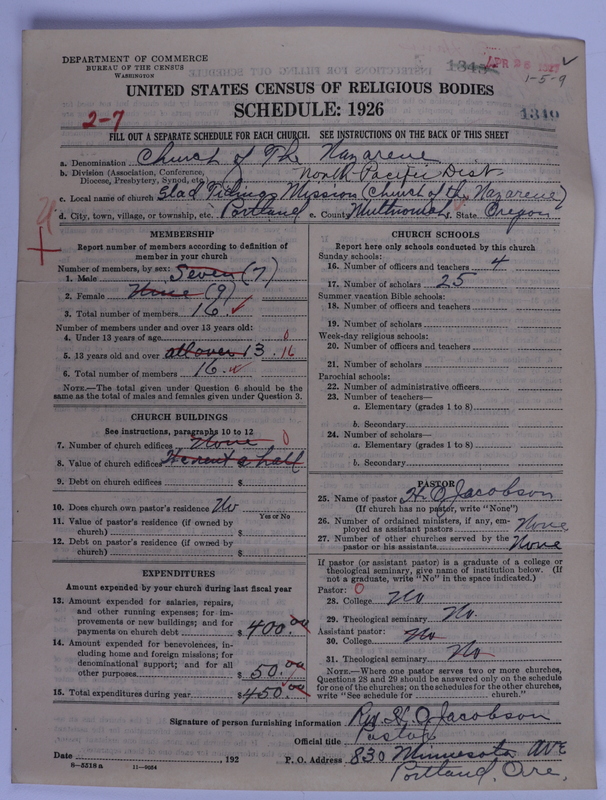 DEPARTMENT OF COMMERCE
BUREAU OF THE CENSUS
WASHINGTON
1345
APR 26 1927
1-5-9
UNITED STATES CENSUS OF RELIGIOUS BODIES
SCHEDULE: 1926
2-7
1349
FILL OUT A SEPARATE SCHEDULE FOR EACH CHURCH. SEE INSTRUCTIONS ON THE BACK OF THIS SHEET
a. Denomination Church of The Nazarene
b. Division (Association, Conference, Diocese, Presbytery, Synod, etc.) North Pacific Dist
c. Local name of church Glad Tidings Mission (Church of the Nazarene)
d. City, town, village, or township, etc. Portland e. County Multnomah f. State Oregon
MEMBERSHIP
Report number of members according to definition of
member in your church
Number of members, by sex:
1. Male Seven (7)
2. Female Nine (9)
3. Total number of members 16
Number of members under and over 13 years old:
4. Under 13 years of age 0
5. 13 years old and over all over 13 16
6. Total number of members 16
NOTE.—The total given under Question 6 should be the
same as the total of males and females given under Question 3.
CHURCH BUILDINGS
See instructions, paragraphs 10 to 12
7. Number of church edifices None 0
8. Value of church edifices We rent a hall
9. Debt on church edifices $
10. Does church own pastor's residence? No
Yes or No
11. Value of pastor's residence (if owned by
church) $
12. Debt on pastor's residence (if owned by
church) $
EXPENDITURES
Amount expended by your church during last fiscal year
13. Amount expended for salaries, repairs,
and other running expenses; for im-
provements or new buildings; and for
payments on church debt $400.00
14. Amount expended for benevolences, in-
cluding home and foreign missions; for
denominational support; and for all
other purposes 50.00
15. Total expenditures during year $450.00
CHURCH SCHOOLS
Report here only schools conducted by this church
Sunday schools:
16. Number of officers and teachers 4
17. Number of scholars 25
Summer vacation Bible schools:
18. Number of officers and teachers
19. Number of scholars
Week-day religious schools:
20. Number of officers and teachers
21. Number of scholars
Parochial schools:
22. Number of administrative officers
23. Number of teachers—
a. Elementary (grades 1 to 8)
b. Secondary
24. Number of scholars—
a. Elementary (grades 1 to 8)
b. Secondary
PASTOR
25. Name of pastor H. O. Jacobson
(If church has no pastor, write "None")
26. Number of ordained ministers, if any, em-
ployed as assistant pastors None
27. Number of other churches served by the
pastor or his assistants None
If pastor (or assistant pastor) is a graduate of a college or
theological seminary, give name of institution below. (If
not a graduate, write "No" in the space indicated.)
Pastor: 0
28. College No
29. Theological seminary No
Assistant pastor:
30. College No
31. Theological seminary No
NOTE.—Where one pastor serves two or more churches,
Questions 28 and 29 should be answered only on the schedule
for one of the churches; on the schedules for the other churches,
write "See schedule for church."
Signature of person furnishing information Rev. H. O. Jacobson
Official title Pastor
Date , 192 P. O. Address 830 Minnesota Ave
8—5518 a 11—9084
Portland, Ore.